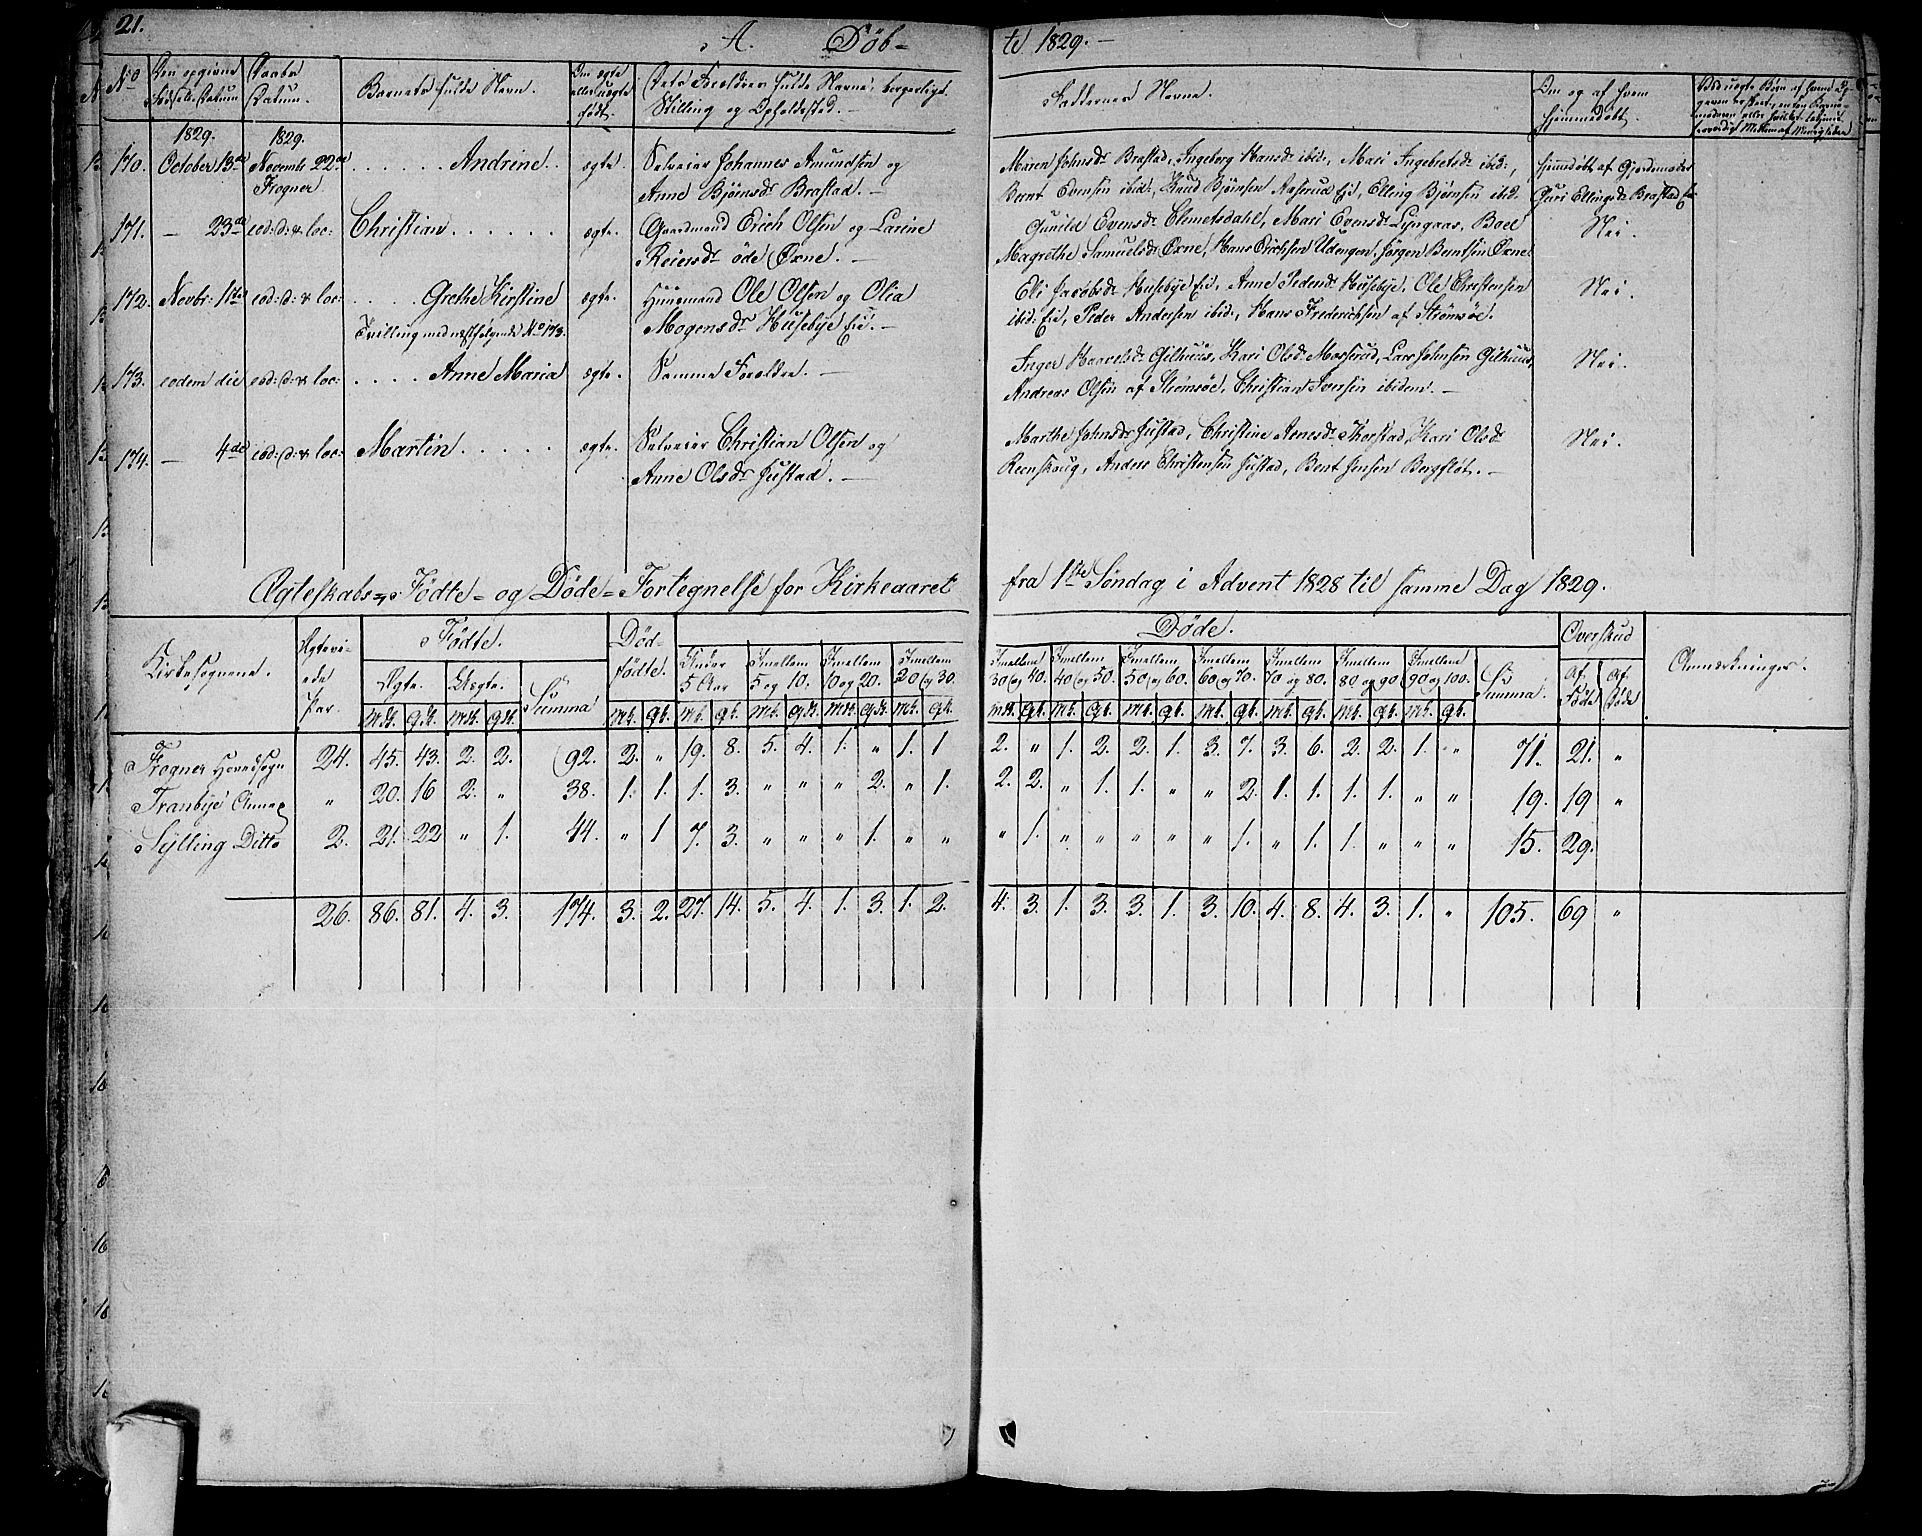 21. A. Døb-
te 1829. —
No
Den opgivne Fødsels-Datum
Daabs Datum.
Barnets fulde Navn.
Om ægte eller uægte født.
Dets Forældres fulde Navne, borgerlige Stilling og Opholdssted.
Faddernes Navne.
Om og af hvem hjemmedøbt.
1829. 1829.
170. October 13de Novembr 22de Frogner. . . . . . Andrine. ægte. Selveier Johannes Amundsen og
Anne Bjørnsdr Brastad. —
Maren Johnsdr Brastad, Ingeborg Hansdr ibid:, Mari Ingebretsdr ibid:,
Bernt Evensen ibid:, Knud Bjørnsen Aaserud Eie, Elling Bjørnsen ibid
hjemmedøbt af Gjordemoder
Guri Ellingsdr Brastad Eie
171. — 23de eod: d: & loc: Christian . . . . . . ægte. Gaardmand Erich Olsen og Larine
Reiersdr øde Øxne. —
Gunild Evensdr Elmetsdahl, Mari Evensdr Lyngaas, Boel
Magrethe Samuelsdr Øxne, Hans Erichsen Udengen, Jørgen Bentsen Øxne
Nei.
172. Novbr: 1ste eod: d: & loc: . . . . Grethe Kirstine ægte. Huusmand Ole Olsen og Olia
Tvilling med næstfølgende No 173. Mogensdr Husebye Eie. —
Eli Jacobsdr Husebye Eie, Anne Pedersdr Husebye, Ole Christensen
ibid: Eie, Peder Andersen ibid:, Hans Frederichsen af Strømsøe.
Nei.
173. eodem die eod: d: & loc: . . . . Anne Maria ægte. Samme Forældre. —
Inger Haavelsdr Gilhuus, Kari Olsdr Morserud, Lars Johnsen Gilhuus,
Andreas Olsen af Strømsøe, Christian Iversen ibidem. —
Nei.
174. — 4de eod: d: & loc: Martin . . . . . ægte. Selveier Christian Olsen og
Anne Olsdr Justad. —
Marthe Johnsdr Justad, Christine Arnesdr Thorstad, Kari Olsdr
Reenskoug, Anders Christensen Justad, Bent Jensen Bergfløt. —
Nei.
Ægteskabs-, Fødte- og Døde-Fortegnelse for Kirkeaaret fra 1ste Søndag i Advent 1828 til samme Dag 1829.
Kirkesognene. Ægtevi- ede Par. Fødte. Død- fødte. Døde. Overskud Anmærkninger.
Ægte. Uægte. Summa Under 5 Aar Imellem 5 og 10. Imellem 10 og 20. Imellem 20 og 30. Imellem 30 og 40. Imellem 40 og 50. Imellem 50 og 60. Imellem 60 og 70. Imellem 70 og 80. Imellem 80 og 90 Imellem 90 og 100. Summa Af Fødte Af Døde
Mk. Qk. Mk. Qk. Mk. Qk. Mk. Qk. Mk. Qk. Mk. Qk. Mk. Qk. Mk. Qk. Mk. Qk. Mk. Qk. Mk. Qk. Mk. Qk. Mk. Qk. Mk. Qk.
Frogner Hovedsogn 24. 45. 43. 2. 2. 92. 2. " 19. 8. 5. 4. 1. " 1. 1 2. " 1. 2. 2. 1. 3. 7. 3. 6. 2. 2. 1. " 71. 21. "
Tranbye Annex " 20. 16 2. " 38. 1. 1. 1. 3. " " " 2. " 1. 2. 2. " 1. 1. " " 2. 1. 1. 1. 1. " " 19. 19 "
Sylling Ditto 2. 21. 22 " 1. 44. " 1 7. 3. " " " 1. " " " 1. " " " " " 1. " 1. 1. " " " 15. 29.
26. 86. 81. 4. 3. 174. 3. 2. 27. 14. 5. 4. 1. 3. 1. 2. 4. 3. 1. 3. 3. 1. 3. 10. 4. 8. 4. 3. 1. " 105. 69 "